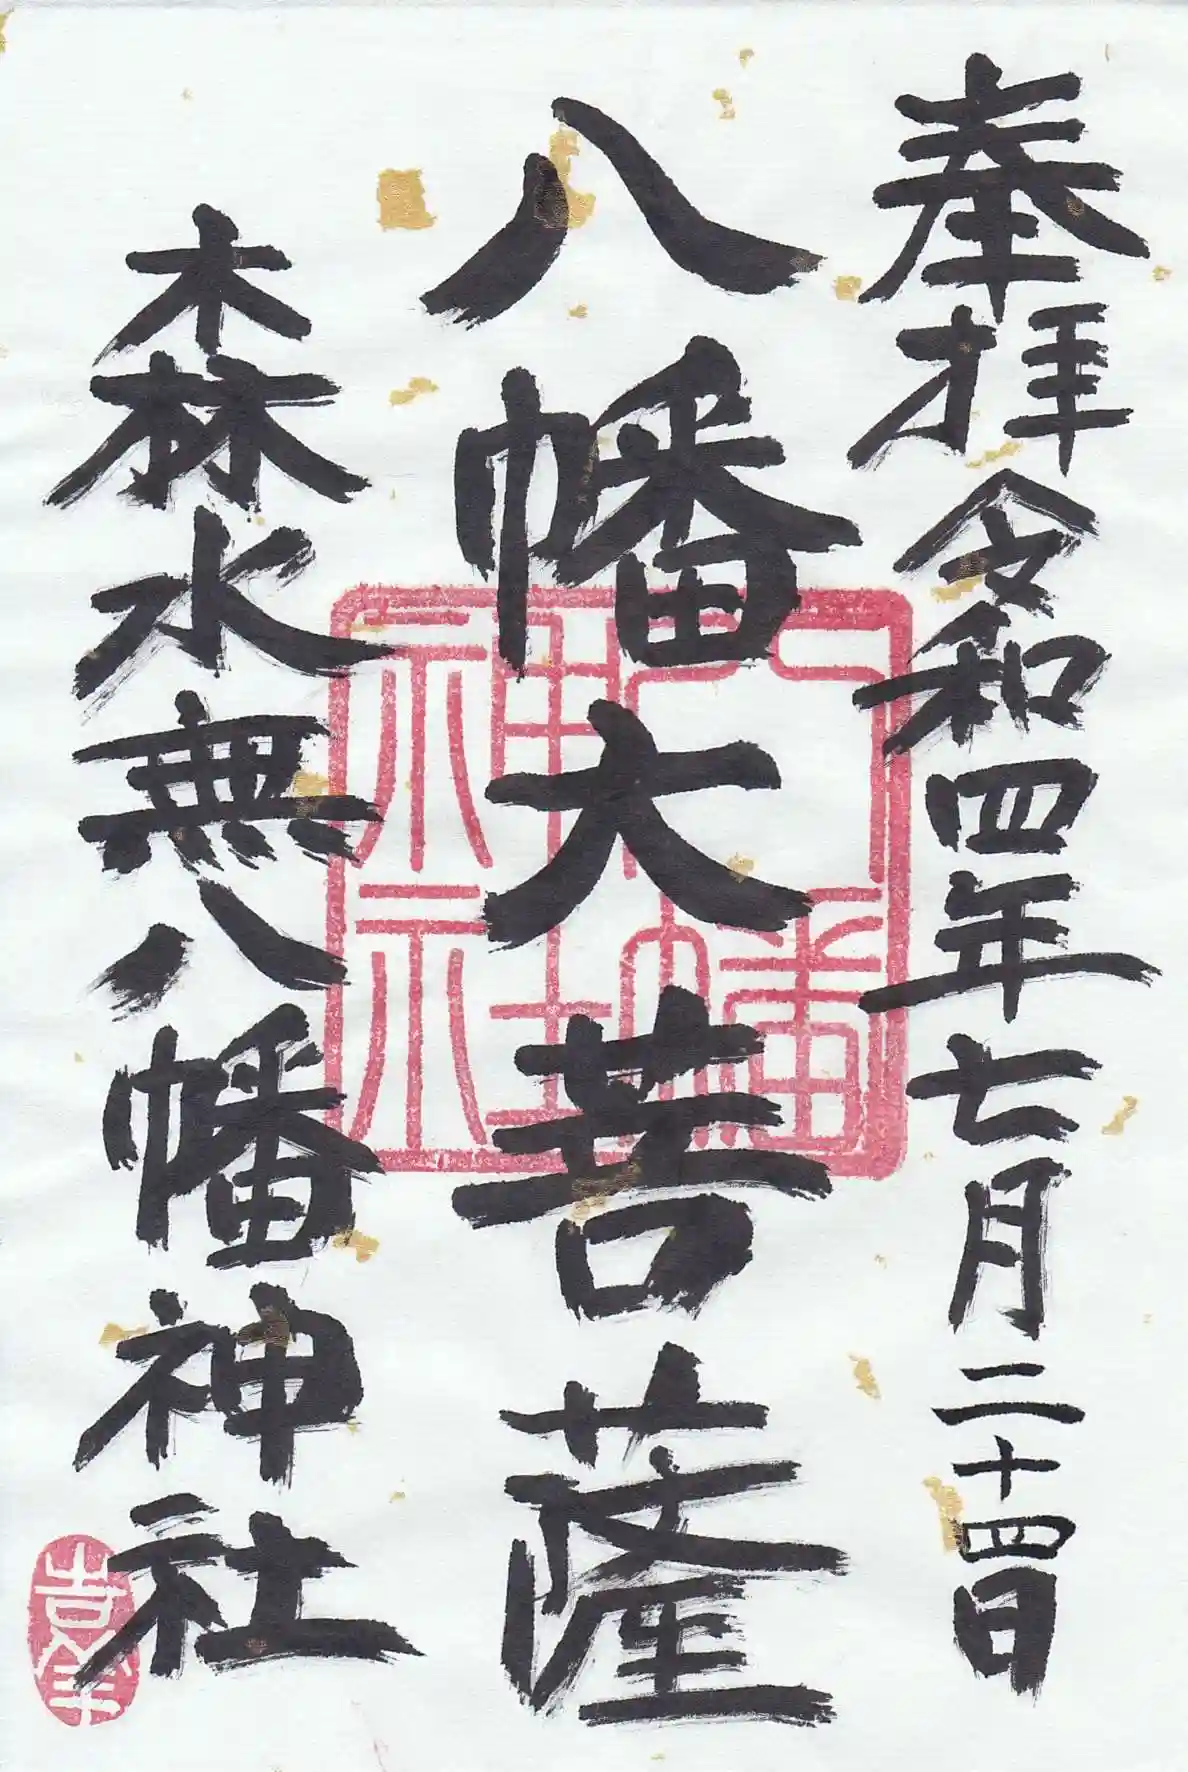 奉拝 令和四年七月二十四日
八幡大菩薩
森水無八幡神社
八幡
神社